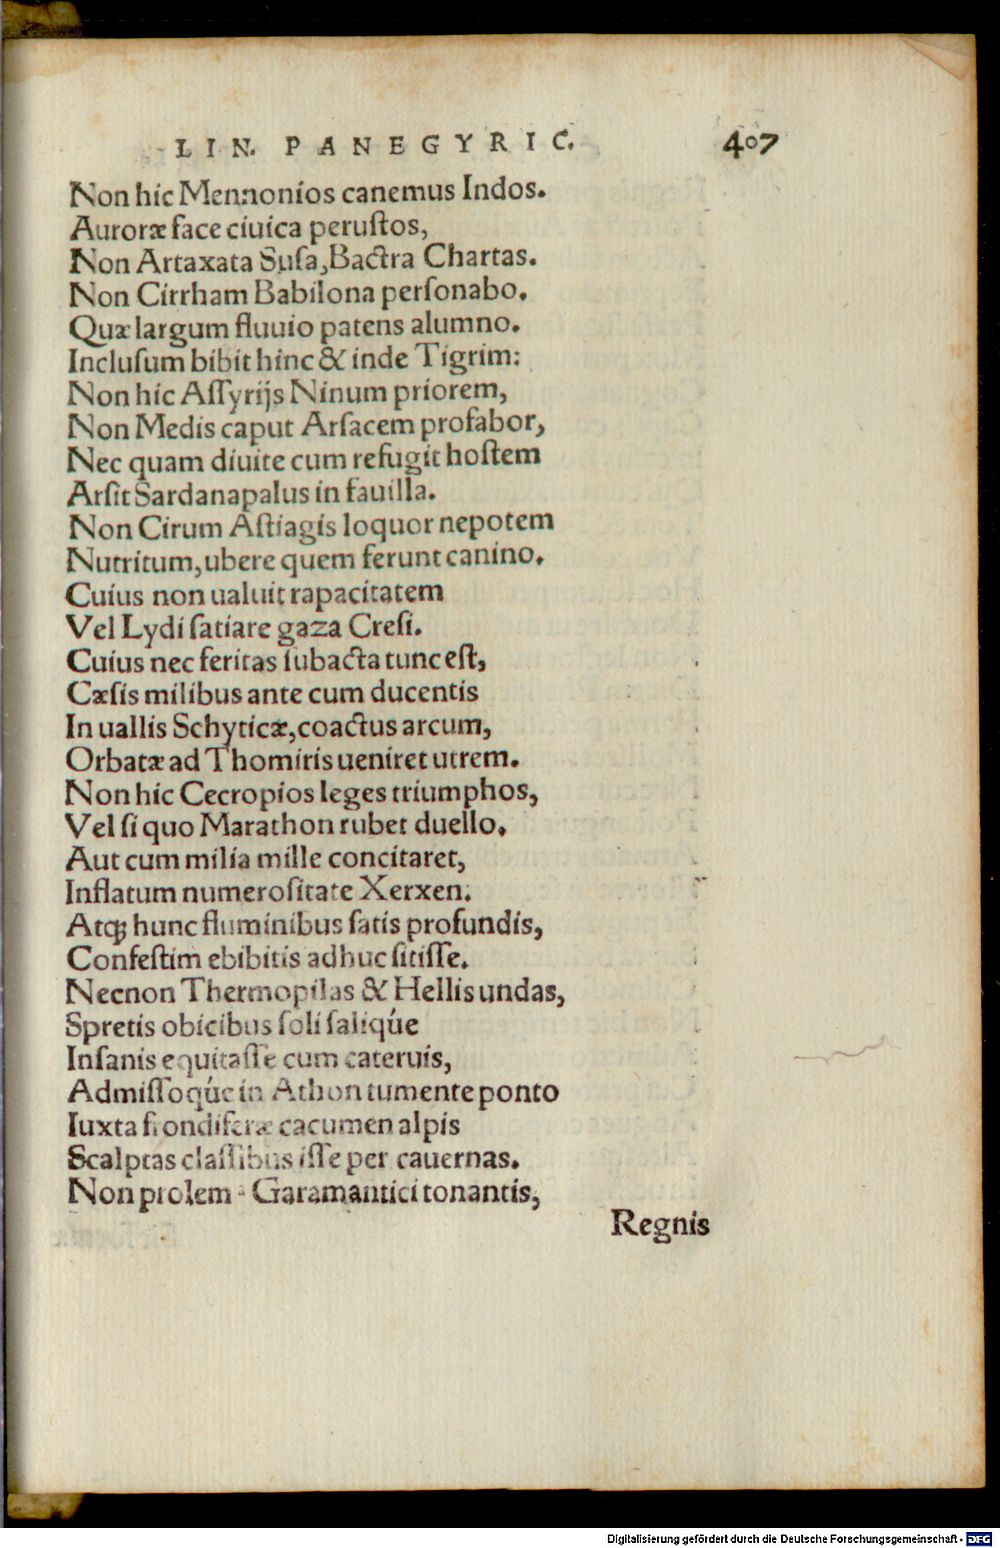 LIN. PANEGYRIC. 407
Non hic Mennonios canemus Indos.
Auroræ face ciuica perustos,
Non Artaxata Susa, Bactra Chartas.
Non Cirrham Babilona personabo.
Quæ largum fluuio patens alumno.
Inclusum bibit hinc & inde Tigrim:
Non hic Assyrijs Ninum priorem,
Non Medis caput Arsacem profabor,
Nec quam diuite cum refugit hostem
Arsit Sardanapalus in fauilla.
Non Cirum Astiagis loquor nepotem
Nutritum, ubere quem ferunt canino.
Cuius non ualuit rapacitatem
Vel Lydi satiare gaza Cresi.
Cuius nec feritas subacta tunc est,
Cæsis milibus ante cum ducentis
In uallis Schyticæ, coactus arcum,
Orbatæ ad Thomiris ueniret utrem.
Non hic Cecropios leges triumphos,
Vel si quo Marathon rubet duello.
Aut cum milia mille concitaret,
Inflatum numerositate Xerxen.
Atq; hunc fluminibus satis profundis,
Confestim ebibitis adhuc sitisse.
Necnon Thermopilas & Hellis undas,
Spretis obicibus soli saliq́ue
Insanis equitasse cum cateruis,
Admissoq́ue in Athon tumente ponto
Iuxta frondiferæ cacumen alpis
Scalptas classibus isse per cauernas.
Non prolem Garamantici tonantis,
Regnis
Digitalisierung gefördert durch die Deutsche Forschungsgemeinschaft - DFG